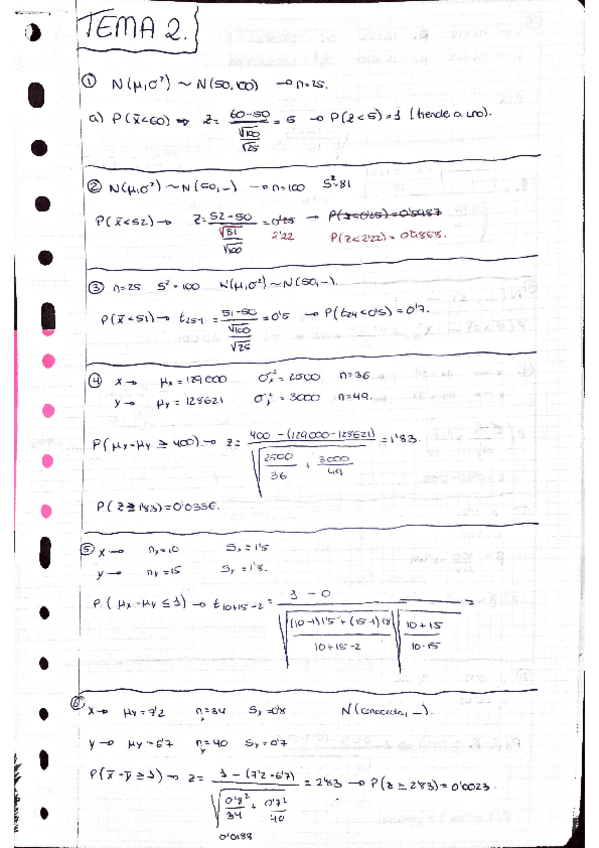 TEMA 2.
① N(μ,σ²) ~ N(50,100) → n=25.
a) P(x̄<60) ⇒ Z= 60-50 / (√100 / √25) = 5 → P(Z<5)=1 (tiende a uno).
② N(μ,σ²) ~ N(50,-) → n=100 S²=81
P(x̄<52) → Z= 52-50 / (√81 / √100) = 0'25 → P(Z<0'25)=0'5987
2'22 P(Z<2'22) = 0'9868.
③ n=25 S²=100 N(μ,σ²) ~ N(50,-).
P(x̄<51) → t25-1 = 51-50 / (√100 / √25) = 0'5 → P(t24<0'5)=0'7.
④ x → μx = 129000 σx² = 2500 n=36
y → μy = 128621 σy² = 3000 n=49.
P(μx-μy ≥ 400) → Z= 400-(129000-128621) / √(2500/36 + 3000/49) = 1'83.
P(Z≥1'83)=0'0336.
⑤ x → nx=10 Sx=1'5
y → ny=15 Sy=1'8.
P(μx-μy ≤ 1) → t10+15-2 = 1-0 / (√((10-1)1'5+(15-1)1'8 / 10+15-2) √(10+15 / 10·15)) =
⑥ x → μx=7'2 nx=34 Sx=0'8 N(conocida,-).
y → μy=6'7 ny=40 Sy=0'7
P(x̄-ȳ≥1) → Z= 1-(7'2-6'7) / √(0'8²/34 + 0'7²/40) = 2'83 → P(Z≥2'83)=0'0023.
0'0188